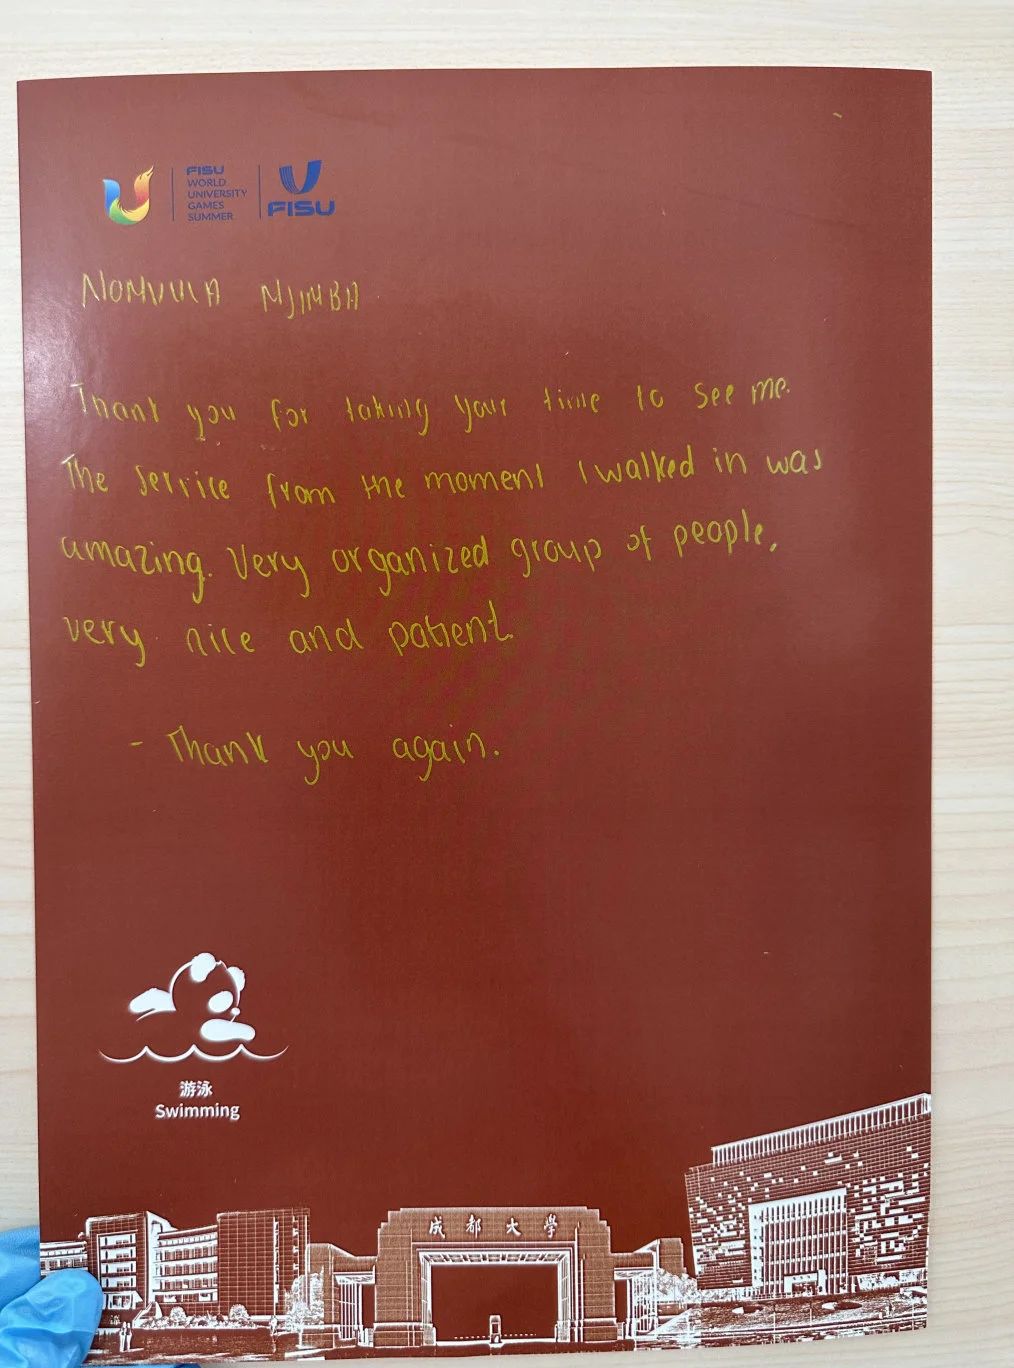 FISU
WORLD
UNIVERSITY
GAMES
SUMMER
FISU
NOMVULA MJIMBA
Thank you for taking your time to see me.
The service from the moment I walked in was
amazing. Very organized group of people,
very nice and patient.
- Thank you again.
游泳
Swimming
成都大學